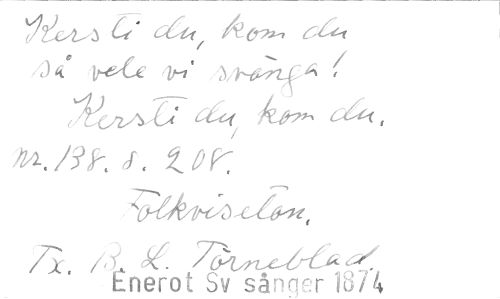 Kersti du, kom du
så vele vi svänga!
Kersti du, kom du.
nr. 138. s. 208.
Folkviseton.
Tx. B. L. Törneblad.
Enerot Sv sånger 1874